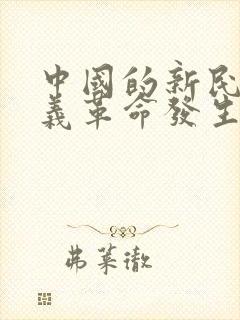 中國的新民
義革命發生
弗萊徹